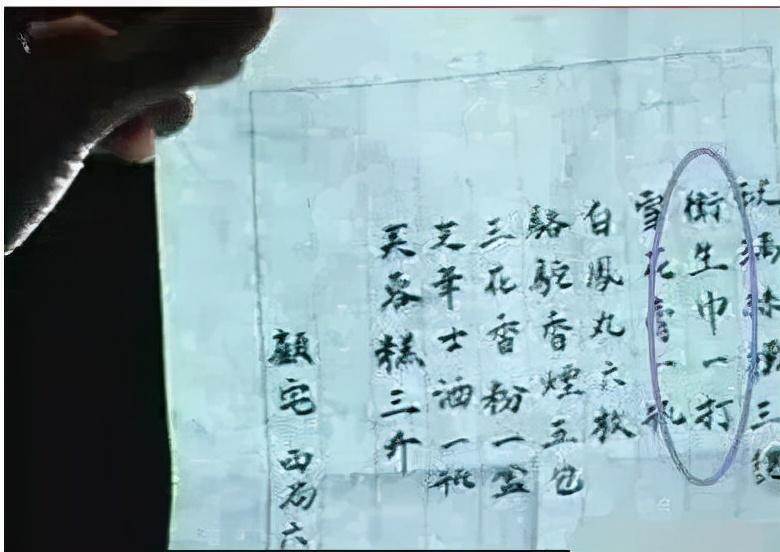 三
衛生巾一打
雪花膏一瓶
白鳳丸六
駱駝香煙五包
三花香粉一盒
芝華士酒一瓶
芙蓉糕三斤
顧宅 西
六